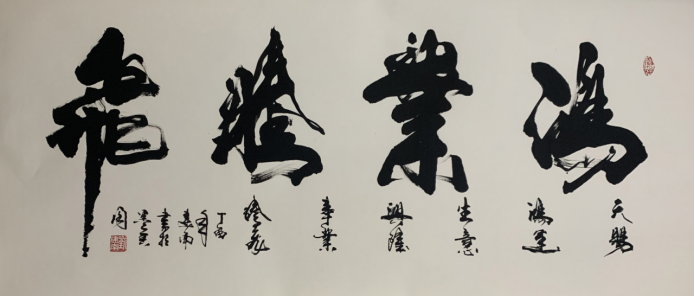 鴻業騰飛
天賜
鴻運
生意
興隆
事業
騰飛
丁酉
年
書於